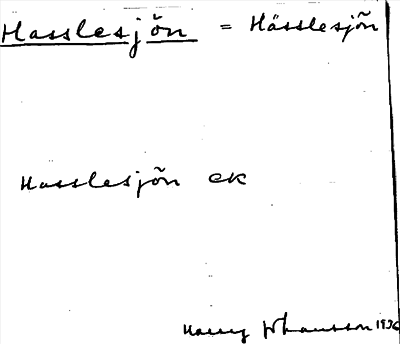 Hasslesjön = Hässlesjön
Hasslesjön ek
Harry Johansson 1936